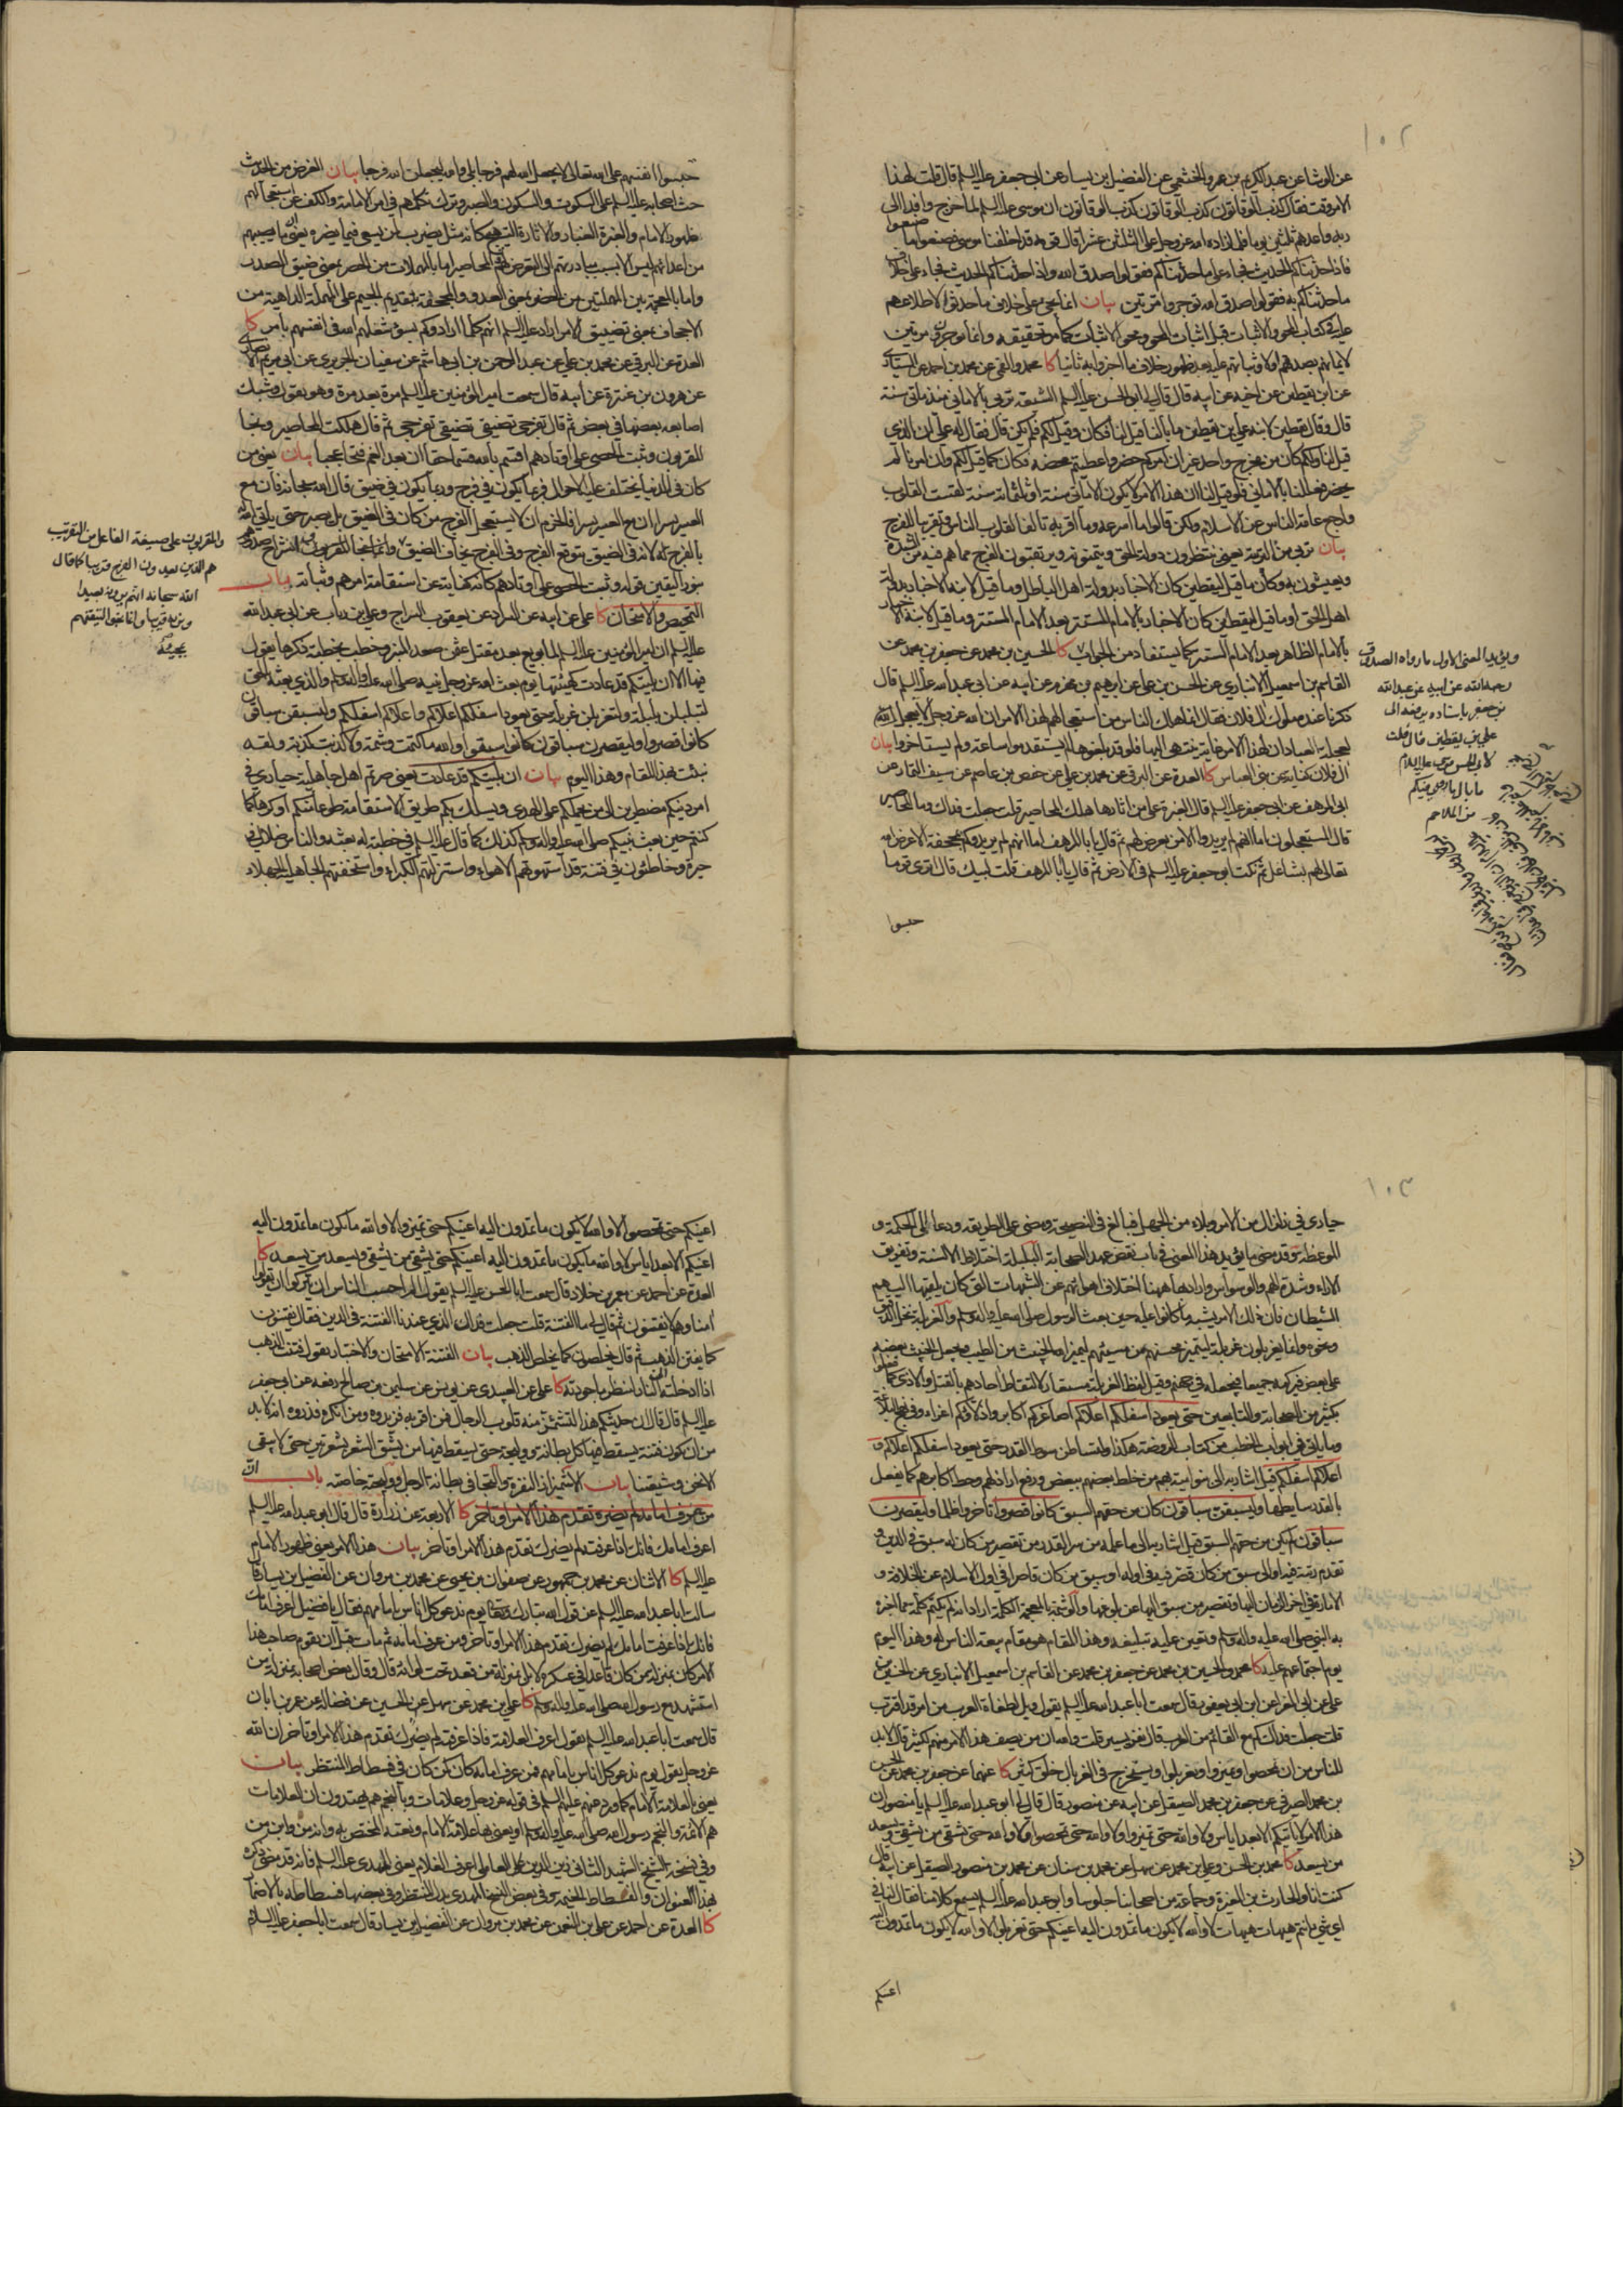 ١٠٢
عن الوشا عن عبد الكريم بن عمرو الخثعمي عن الفضيل بن يسار عن ابي جعفر عليه السلم قال قلت لهذا
الامر وقت فقال كذب الوقاتون كذب الوقاتون كذب الوقاتون ان موسى عليه السلم لما خرج وافدا الى
ربه واعدهم ثلثين يوما فلما زاده الله عز وجل على الثلثين عشرا قال قومه قد اخلفنا موسى فصنعوا ما صنعوا
فاذا حدثناكم الحديث فجاء على ما حدثناكم فقولوا صدق الله واذا حدثناكم الحديث فجاء على خلاف
ما حدثناكم به فقولوا صدق الله توجروا مرتين بيان انما يجئ على خلاف ما حدثوا لاطلاعهم
عليه في كتاب المحو والاثبات قبل اثبات المحو ومحو الاثبات كما مر تحقيقه وانما يوجرون مرتين
لايمانهم بصدقهم اولا وثباتهم عليه بعد ظهور خلاف ما اخبروا به ثانيا كا محمد والقمي عن محمد بن احمد عن السياري
عن ابن يقطين عن اخيه عن ابيه قال قال لي ابو الحسن عليه السلم الشيعة تربى بالاماني منذ مأتي سنة
قال وقال يقطين لابنه علي بن يقطين ما بالنا قيل لنا فكان وقيل لكم فلم يكن قال فقال له علي ان الذي
قيل لنا ولكم كان من مخرج واحد غير ان امركم حضر فاعطيتم محضه فكان كما قيل لكم وان امرنا لم
يحضر فعللنا بالاماني فلو قيل لنا ان هذا الامر لا يكون الا مأتي سنة او ثلثمائة سنة لقست القلوب
ولرجع عامة الناس عن الاسلام ولكن قالوا ما اسرعه وما اقربه تالفا لقلوب الناس وتقريبا للفرج
بيان تربى من التربية يعني ينتظرون دولة الحق ويتمنونه ويرتقبون الفرج مما هم فيه من الشدة
ويعيشون به وكأن ما قيل ليقطين كان الاخبار بدولة اهل الباطل وما قيل لابنه الاخبار بدولة
اهل الحق او ما قيل ليقطين كان الاخبار بالامام المستتر بعد الامام المستتر وما قيل لابنه الاخبار
بالامام الظاهر بعد الامام المستتر كما يستفاد من الجواب كا الحسين بن محمد عن جعفر بن محمد عن
القاسم بن اسمعيل الانباري عن الحسن بن علي عن ابرهيم بن مهزم عن ابيه عن ابي عبد الله عليه السلم قال
ذكرنا عنده ملوك آل فلان فقال انما هلك الناس من استعجالهم لهذا الامر ان الله عز وجل لا يعجل
لعجلة العباد ان لهذا الامر غاية ينتهي اليها فلو قد بلغوها لم يستقدموا ساعة ولم يستاخروا بيان
آل فلان كناية عن بني العباس كا العدة عن البرقي عن محمد بن علي عن حفص بن عاصم عن سيف التمار عن
ابي المرهف عن ابي جعفر عليه السلم قال الغبرة على من اثارها هلك المحاصير قلت جعلت فداك وما المحاصير
قال المستعجلون اما انهم لم يريدوا الا من يعرض لهم ثم قال يا با المرهف اما انهم لم يريدوكم بمجحفة الا عرض الله
تعالى لهم بشاغل ثم نكت ابو جعفر عليه السلم في الارض ثم قال يا با المرهف قلت لبيك قال اترى قوما
حبسوا
ويؤيد المعنى الاول ما رواه الصدوق
رحمه الله عن ابيه عن عبد الله
بن جعفر باسناده يرفعه الى
علي بن يقطين قال قلت
لابي الحسن موسى عليه السلام
ما بال ما روي فيكم
من الملاحم
حبسوا انفسهم على الله تعالى لا يجعل الله لهم فرجا بلى والله ليجعلن الله فرجا بيان الغرض من الحديث
حث اصحابه عليه السلم على السكوت والسكون والصبر وترك تكلمهم في امر الامامة والكف عن استعجالهم
ظهور الامام والغبرة الغبار والاثارة التهييج كأنه مثل يضرب لمن يسعى فيما يضره يعني ما يصيبهم
من اعدائهم ليس الا بسبب مبادرتهم الى التعرض لهم والمحاصير اما بالمهملات من الحصر بمعنى ضيق الصدر
واما بالمعجمة بين المهملتين من الحضر بمعنى العدو والمجحفة بتقديم الجيم على المهملة الداهية من
الاجحاف بمعنى تضييق الامر اراد عليه السلم انهم كلما ارادوكم بسوء شغلهم الله في انفسهم بامر كا
العدة عن البرقي عن محمد بن علي عن عبد الرحمن بن ابي هاشم عن سفيان الجريري عن ابي مريم الانصاري
عن هرون بن عنترة عن ابيه قال سمعت امير المؤمنين عليه السلم مرة بعد مرة وهو يقول وشبك
اصابعه بعضها في بعض ثم قال تفرجي تضيقي تضيقي تفرجي ثم قال هلكت المحاصير ونجا
المقربون وثبت الحصى على اوتادهم اقسم بالله قسما حقا ان بعد الغم فتحا عجبا بيان يعني من
كان في الدنيا يختلف عليه الاحوال فربما يكون في فرج وربما يكون في ضيق قال الله سبحانه فان مع
العسر يسرا ان مع العسر يسرا فالحزم ان لا يستعجل الفرج من كان في الضيق بل يصبر حتى ياتي الله
بالفرج له لانه في الضيق يتوقع الفرج وفي الفرج يخاف الضيق وانما نجا المقربون لانشراح صدورهم
بنور اليقين قوله وثبت الحصى على اوتادهم كانه كناية عن استقامة امرهم وثباته باب
التمحيص والامتحان كا علي عن ابيه عن السراد عن يعقوب السراج وعلي بن رباب عن ابي عبد الله
عليه السلم ان امير المؤمنين عليه السلم لما بويع بعد مقتل عثمن صعد المنبر وخطب بخطبة ذكرها يقول
فيها الا ان بليتكم قد عادت كهيئتها يوم بعث الله عز وجل نبيه صلى الله عليه وآله والذي بعثه بالحق
لتبلبلن بلبلة ولتغربلن غربلة حتى يعود اسفلكم اعلاكم واعلاكم اسفلكم وليسبقن سباقون
كانوا قصروا وليقصرن سباقون كانوا سبقوا والله ما كتمت وشمة ولا كذبت كذبة ولقد
نبئت بهذا المقام وهذا اليوم بيان ان بليتكم قد عادت يعني صرتم اهل جاهلية حيارى في
امر دينكم مضطربين الى من يحملكم على الهدى ويسلك بكم طريق الاستقامة طوعا منكم او كرها كما
كنتم حين بعث نبيكم صلى الله عليه وآله وسلم كذلك كما قال عليه السلم في خطبة له بعثه والناس ضلال في
حيرة وخاطئون في فتنة قد استهوتهم الاهواء واستزلتهم الكبراء واستخفتهم الجاهلية الجهلاء
والمقربون على صيغة الفاعل من التقريب
هم الذين يعدون الفرج قريبا كما قال
الله سبحانه انهم يرونه بعيدا
ونريه قريبا وانما نجوا لتيقنهم
بمجيئه
١٠٣
حيارى في زلزال من الامر وبلاء من الجهل فبالغ في النصيحة ومضى على الطريقة ودعا الى الحكمة و
الموعظة وقد مضى ما يؤيد هذا المعنى في باب نقض عهد الصحابة البلبلة اختلاط الالسنة وتفريق
الاراء وشدة الهم والوسواس واراد بها ههنا اختلاف اهوائهم عن الشبهات التي كان يلقيها اليهم
الشيطان فان ذلك الامر يشبه ما كانوا عليه حين بعث الرسول صلى الله عليه وآله وسلم والغربلة نخل الدقيق
ونحوه وانما يغربلون غربلة ليتميز محسنهم من مسيئهم ليميز الله الخبيث من الطيب ويجعل الخبيث بعضه
على بعض فيركمه جميعا فيجعله في جهنم وقيل لفظ الغربلة مستعار لالتقاط احادهم بالقتل والاذى كما فعلوا
بكثير من الصحابة والتابعين حتى يعود اسفلكم اعلاكم اصاغركم اكابر واذلاؤكم اعزاء وفي نهج البلاغة
وما ياتي في ابواب الخطب من كتاب الروضة هكذا ولتساطن سوط القدر حتى يعود اسفلكم اعلاكم و
اعلاكم اسفلكم قيل اشار به الى بني امية من خلط بعضهم ببعض ورفع اراذلهم وحط اكابرهم كما يفعل
بالقدر سايطها وليسبقن سباقون كان من حقهم السبق كانوا قصروا تاخروا ظلما وليقصرن
سباقون لم يكن من حقهم السبق قيل اشار به الى ما علمه من سر القدر من تقصير من كان له سبق في الدين و
تقدم رتبة فيه اولى سبق من كان قصر فيه في اوله او سبق من كان قاصرا في اول الاسلام عن الخلافة و
الامارة في اخر الزمان اليها وتقصير من سبق اليها عن بلوغها والوشمة بالمعجمة الكلمة اراد انه لم يكتم كلمة مما اخبره
به النبي صلى الله عليه وآله وسلم وتعين عليه تبليغه وهذا المقام هو مقام بيعة الناس له وهذا اليوم
يوم اجتماعهم عليه كا محمد والحسين بن محمد عن جعفر بن محمد عن القاسم بن اسمعيل الانباري عن الحسين بن
علي عن ابي المغرا عن ابن ابي يعفور قال سمعت ابا عبد الله عليه السلم يقول ويل لطغاة العرب من امر قد اقترب
قلت جعلت فداك كم مع القائم من العرب قال نفر يسير قلت والله ان من يصف هذا الامر منهم لكثير قال لا بد
للناس من ان يمحصوا ويميزوا ويغربلوا ويستخرج في الغربال خلق كثير كا عنهما عن جعفر بن محمد عن الحسن
بن محمد الصيرفي عن جعفر بن محمد الصيقل عن ابيه عن منصور قال قال لي ابو عبد الله عليه السلم يا منصور ان
هذا الامر لا ياتيكم الا بعد اياس ولا والله حتى تميزوا ولا والله حتى تمحصوا ولا والله حتى يشقى من يشقى ويسعد
من يسعد كا محمد بن الحسن وعلي بن محمد عن سهل عن محمد بن سنان عن محمد بن منصور الصيقل عن ابيه قال
كنت انا والحارث بن المغيرة وجماعة من اصحابنا جلوسا وابو عبد الله عليه السلم يسمع كلامنا فقال لنا في
اي شيء انتم هيهات هيهات لا والله لا يكون ما تمدون اليه اعينكم حتى تغربلوا لا والله لا يكون ما تمدون اليه
اعينكم
اعينكم حتى تمحصوا لا والله لا يكون ما تمدون اليه اعينكم حتى تميزوا لا والله ما يكون ما تمدون اليه
اعينكم الا بعد اياس لا والله ما يكون ما تمدون اليه اعينكم حتى يشقى من يشقى ويسعد من يسعد كا
العدة عن احمد عن معمر بن خلاد قال سمعت ابا الحسن عليه السلم يقول الم احسب الناس ان يتركوا ان يقولوا
آمنا وهم لا يفتنون ثم قال لي ما الفتنة قلت جعلت فداك الذي عندنا الفتنة في الدين فقال يفتنون
كما يفتن الذهب ثم قال يخلصون كما يخلص الذهب بيان الفتنة الامتحان والاختبار تقول فتنت الذهب
اذا ادخلته النار لتنظر ما جودته كا علي عن العبيدي عن يونس عن سليمن بن صالح رفعه عن ابي جعفر
عليه السلم قال قال ان حديثكم هذا لتشمئز منه قلوب الرجال فمن اقر به فزيدوه ومن انكره فذروه انه لا بد
من ان يكون فتنة يسقط فيها كل بطانة ووليجة حتى يسقط فيها من يشق الشعر بشعرتين حتى لا يبقى
الا نحن وشيعتنا بيان الاشمئزاز النفرة والتجافي بطانة الرجل ووليجته خاصته باب ان
من عرف امامه لم يضره تقدم هذا الامر او تاخر كا الاربعة عن زرارة قال قال ابو عبد الله عليه السلم
اعرف امامك فانك اذا عرفت لم يضرك تقدم هذا الامر او تاخر بيان هذا الامر يعني ظهور الامام
عليه السلم كا الاثنان عن محمد بن جمهور عن صفوان بن يحيى عن محمد بن مروان عن الفضيل بن يسار قال
سالت ابا عبد الله عليه السلم عن قول الله تبارك وتعالى يوم ندعو كل اناس بامامهم فقال يا فضيل اعرف امامك
فانك اذا عرفت امامك لم يضرك تقدم هذا الامر او تاخر ومن عرف امامه ثم مات قبل ان يقوم صاحب هذا
الامر كان بمنزلة من كان قاعدا في عسكره لا بل بمنزلة من قعد تحت لوائه قال وقال بعض اصحابه بمنزلة من
استشهد مع رسول الله صلى الله عليه وآله وسلم كا علي بن محمد عن سهل عن الحسين عن فضالة عن عمر بن ابان
قال سمعت ابا عبد الله عليه السلم يقول اعرف العلامة فاذا عرفته لم يضرك تقدم هذا الامر او تاخر ان الله
عز وجل يقول يوم ندعو كل اناس بامامهم فمن عرف امامه كان كمن كان في فسطاط المنتظر بيان
يعني بالعلامة الامام كما ورد عنهم عليهم السلم في قوله عز وجل وعلامات وبالنجم هم يهتدون ان العلامات
هم الائمة والنجم رسول الله صلى الله عليه وآله وسلم او يعني بها علامة الامام ونعته المختص به وانه من وابن من
وفي نسخة الشيخ الشهيد الثاني زين الدين العاملي اعرف الغلام يعني المهدي عليه السلم فانه قد مضى ذكره
بهذا العنوان والفسطاط الخيمة وفي بعض النسخ المهدي بدل المنتظر وفي بعضها فسطاطه بالاضمار
كا العدة عن احمد عن علي بن النعمن عن محمد بن مروان عن الفضيل بن يسار قال سمعت ابا جعفر عليه السلام